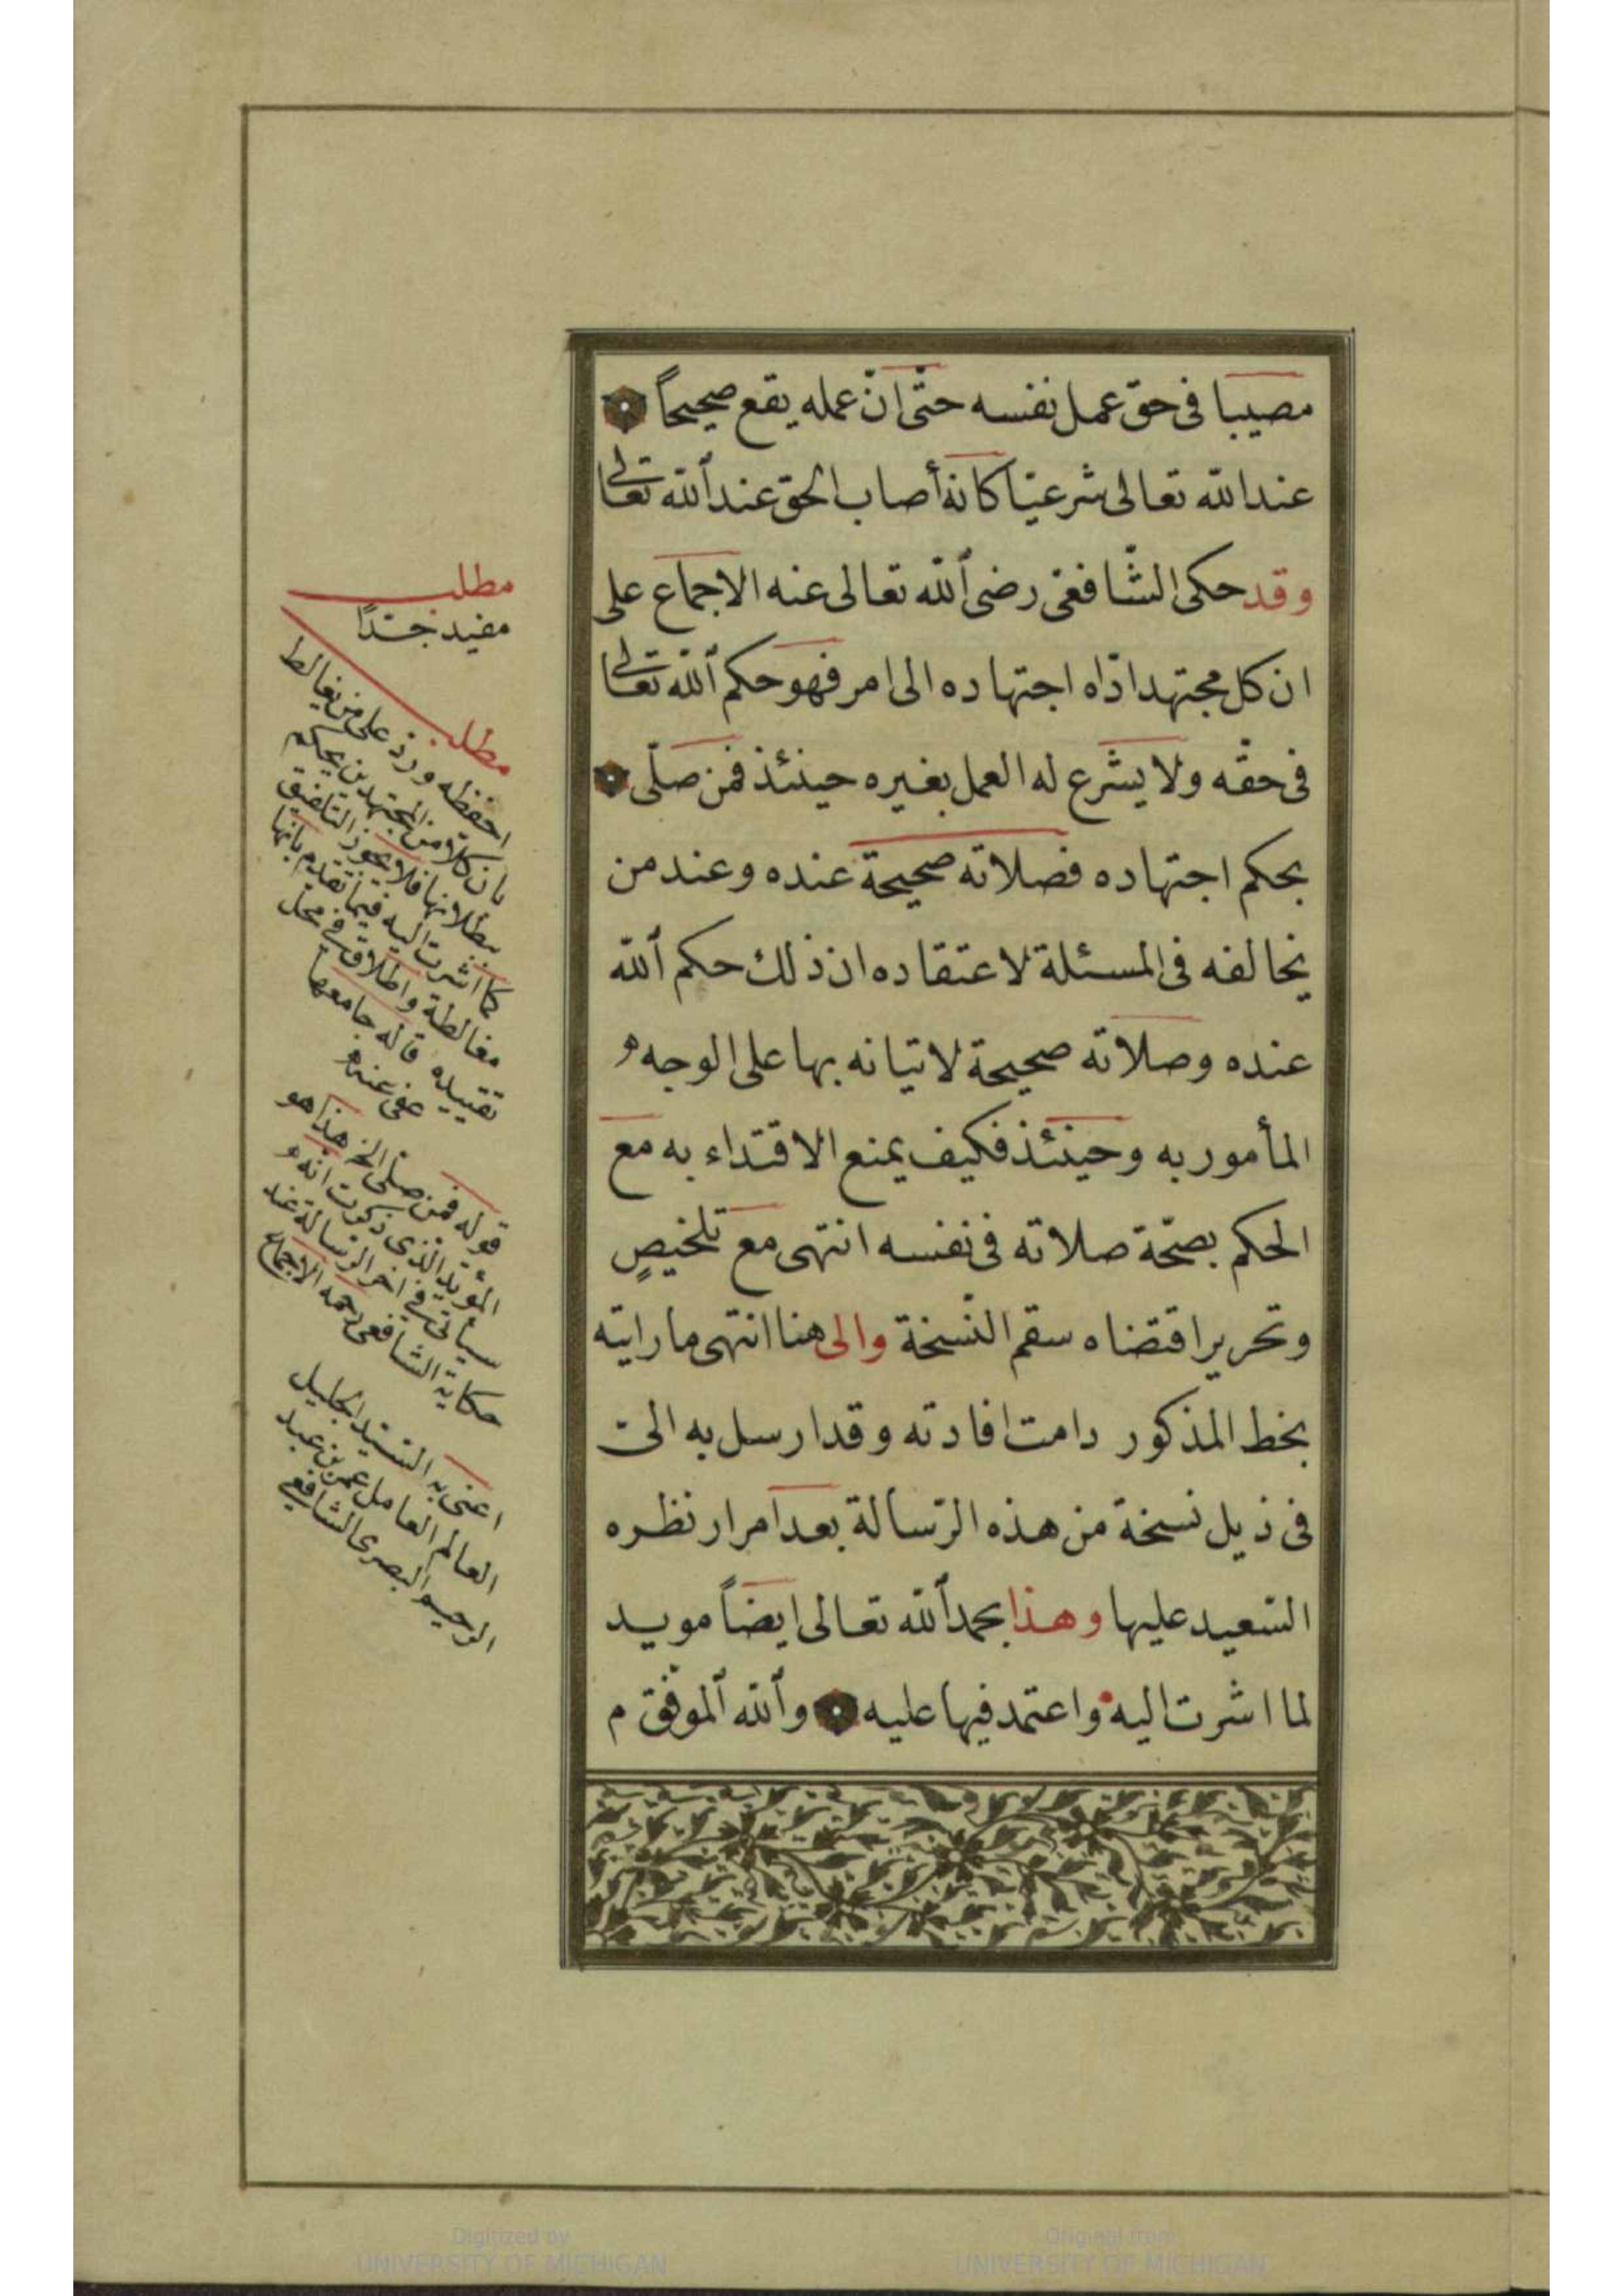 مصيبا فى حق عمل نفسه حتّى انّ عمله يقع صحيحاً
عند الله تعالى شرعيّا كانه أصاب الحق عند ألله تعالى
وقد حكى الشّافعى رضى ألله تعالى عنه الاجماع على
ان كل مجتهد ادّاه اجتهاده الى امر فهو حكم ألله تعالى
فى حقّه ولا يشرع له العمل بغيره حينئذ فمن صلّى
بحكم اجتهاده فصلاته صحيحة عنده وعند من
يخالفه فى المسئلة لاعتقاده ان ذلك حكم ألله
عنده وصلاته صحيحة لاتيانه بها على الوجه
المأمور به وحينئذ فكيف يمنع الاقتداء به مع
الحكم بصحّة صلاته فى نفسه انتهى مع تلخيصٍ
وتحرير اقتضاه سقم النّسخة والى هنا انتهى ما رايته
بخط المذكور دامت افادته وقد ارسل به الىّ
فى ذيل نسخة من هذه الرّسالة بعد امرار نظره
السّعيد عليها وهذا بحمد ألله تعالى ايضاً مويد
لما اشرت اليه واعتمد فيها عليه وألله ألموفّق م
مطلب
مفيد جدّاً
مطلب
احفظه وردّ على من يغالط
بان كلا من المجتهدين يحكم
ببطلانها فلا يجوز التلفيق
كما اشرت اليه فيما تقدم بانها
مغالطة واطلاق فى محل
تقييده قاله جامعها
عفى عنه
قوله فمن صلى الخ هذا هو
المؤيد الذى ذكرت انه
سيأتى فى اخر الرسالة عند
حكاية الشافعى رحمه الاجماع
اعنى به السّيّد الجليل
العالم العامل عمر بن عبد
الرحيم البصرى الشافعى
Digitized by
UNIVERSITY OF MICHIGAN
Original from
UNIVERSITY OF MICHIGAN